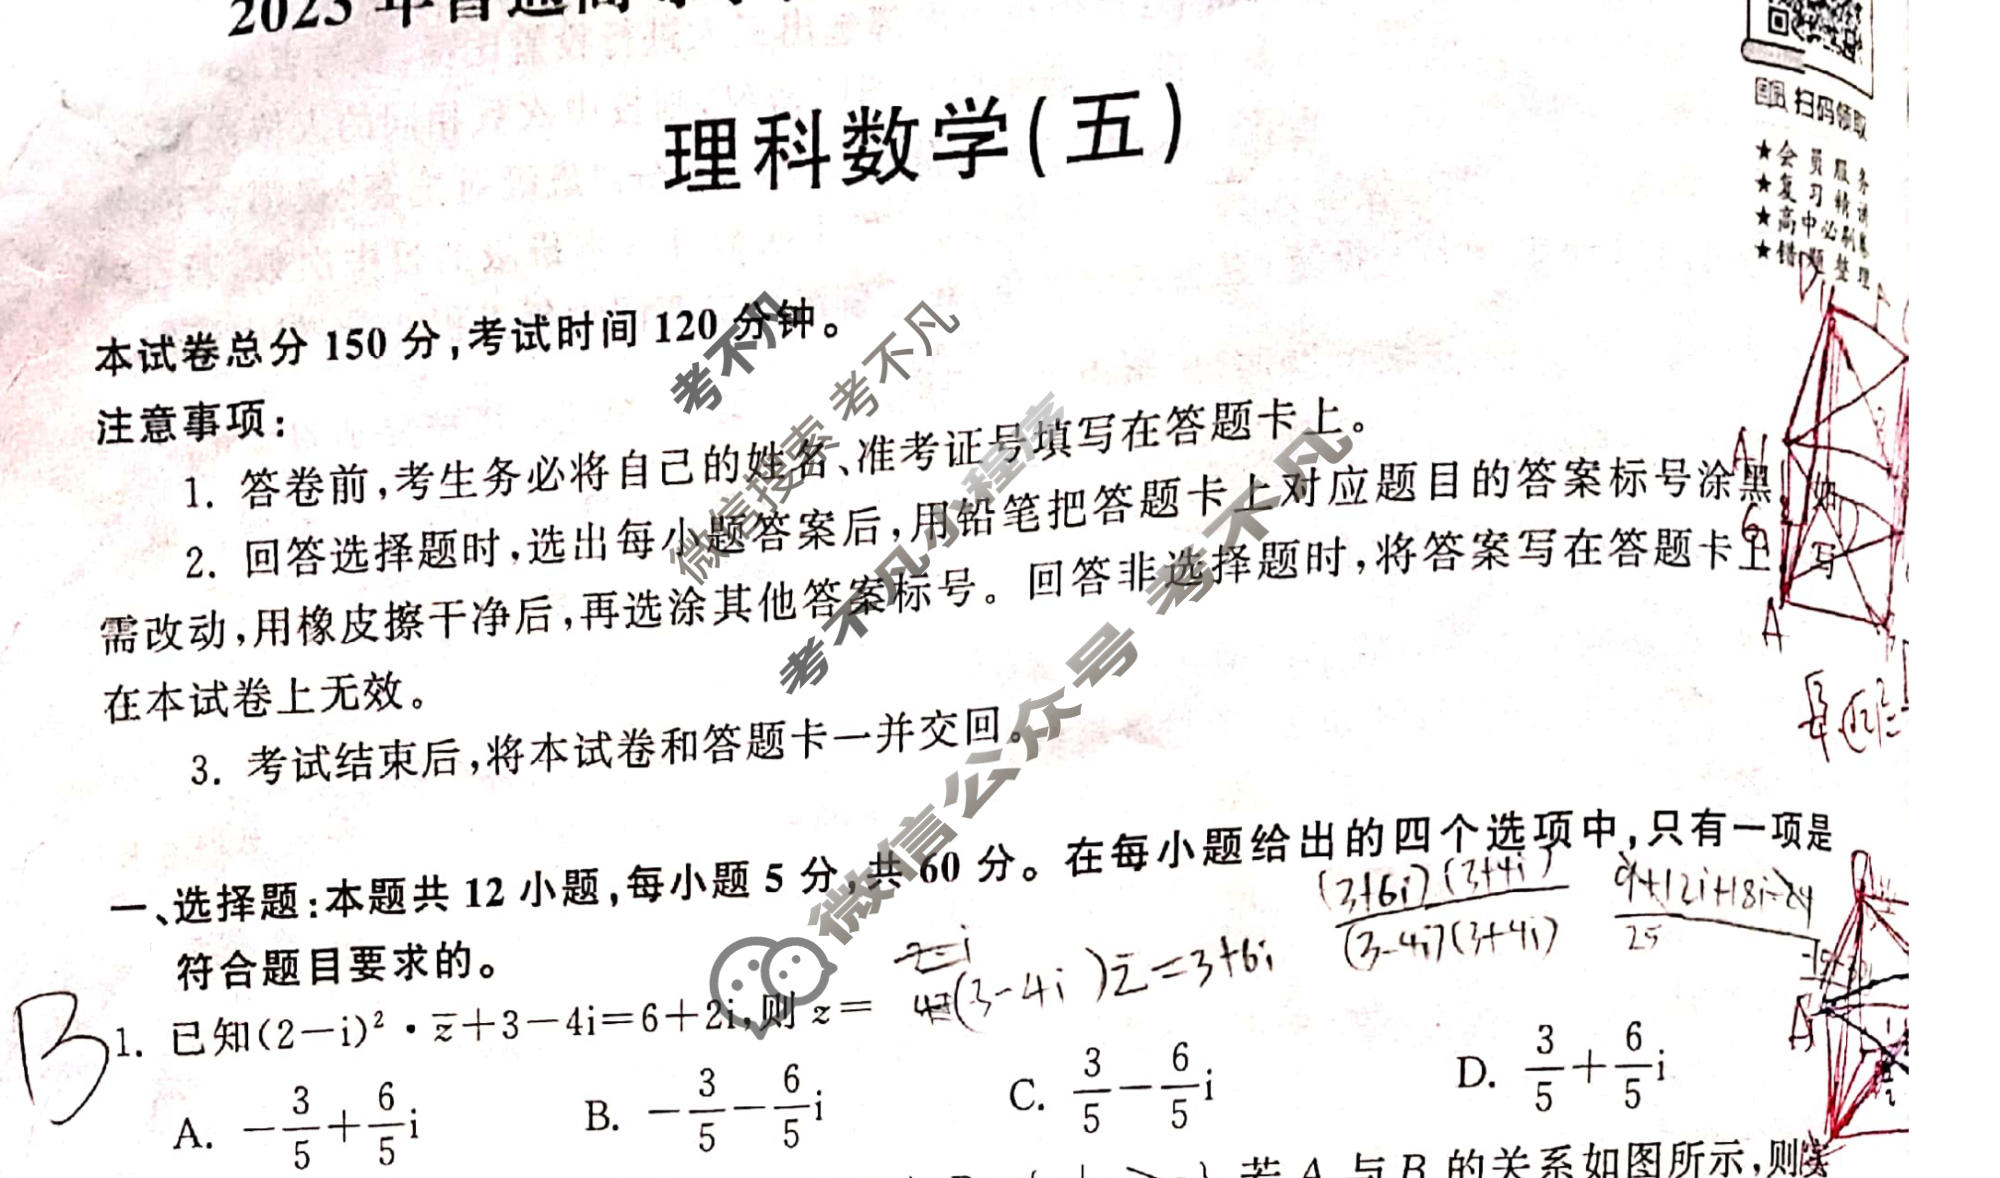 2023年普通高等
理科数学(五)
扫码领取
★会员服务
★复习精讲
★高中必刷卷
★错题整理
本试卷总分 150 分,考试时间 120 分钟。
注意事项:
1. 答卷前,考生务必将自己的姓名、准考证号填写在答题卡上。
2. 回答选择题时,选出每小题答案后,用铅笔把答题卡上对应题目的答案标号涂黑。如
需改动,用橡皮擦干净后,再选涂其他答案标号。回答非选择题时,将答案写在答题卡上。写
在本试卷上无效。
3. 考试结束后,将本试卷和答题卡一并交回。
考不凡
微信搜索 考不凡
考不凡小程序
微信公众号 考不凡
一、选择题:本题共 12 小题,每小题 5 分,共 60 分。在每小题给出的四个选项中,只有一项是
符合题目要求的。
(3+6i)(3+4i)/(3-4i)(3+4i) 9+12i+18i-24/25
(3-4i)z̅=3+6i
B
1. 已知(2-i)²·z̅+3-4i=6+2i,则 z=
A. -3/5+6/5i B. -3/5-6/5i C. 3/5-6/5i D. 3/5+6/5i
若 A 与 B 的关系如图所示,则